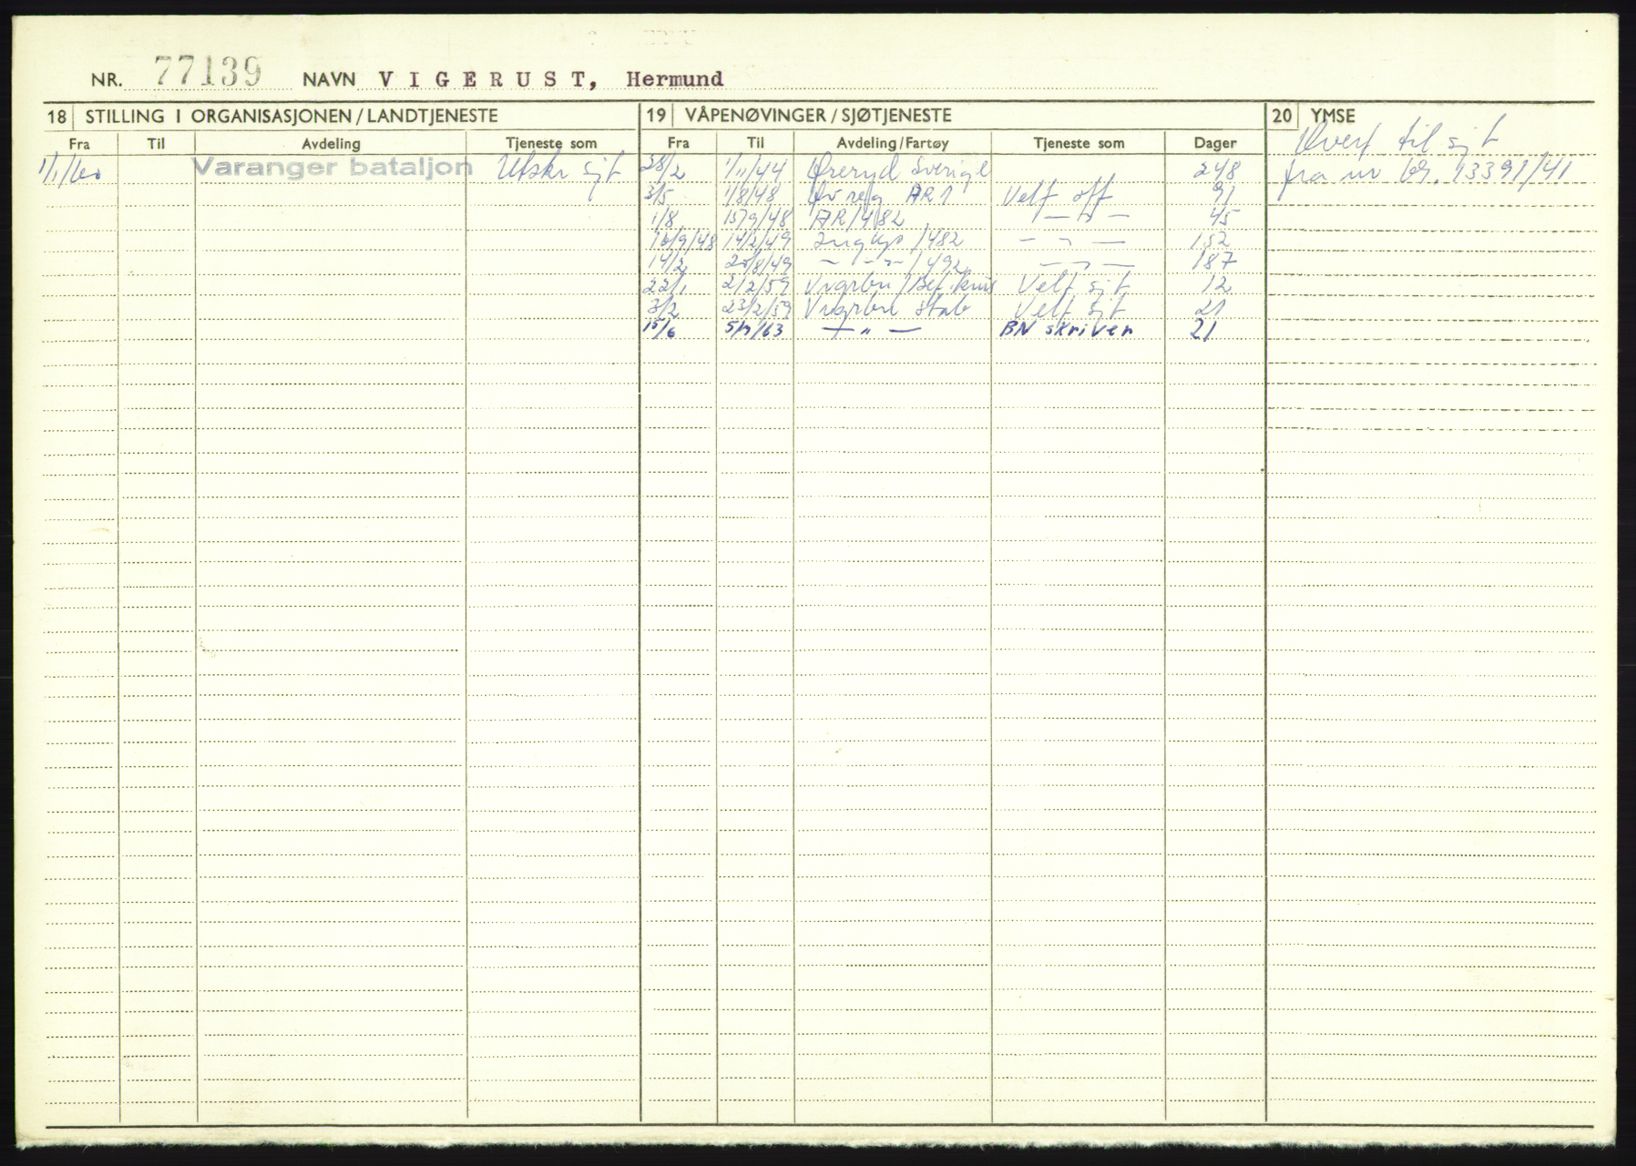 NR. 77139 NAVN VIGERUST, Hermund
18 STILLING I ORGANISASJONEN/LANDTJENESTE 19 VÅPENØVINGER/SJØTJENESTE 20 YMSE
Fra Til Avdeling Tjeneste som Fra Til Avdeling/Fartøy Tjeneste som Dager
Overf til sjt
1/1/60 Varanger bataljon Utskr sjt 28/2 1/11/44 Øreryd Sverige 248 fra nr 69. 13391/41
3/5 1/8/48 Øv reg AR1 Velf off 91
1/8 15/9/48 AR/482 — " — 45
16/9/48 14/2/49 /482 — " — 152
14/2 20/8/49 — " — /492 — " — 187
22/1 2/2/59 Velf sjt 12
3/2 23/2/59 stab Velf sjt 21
15/6 5/7/63 — " — BN skriver 21